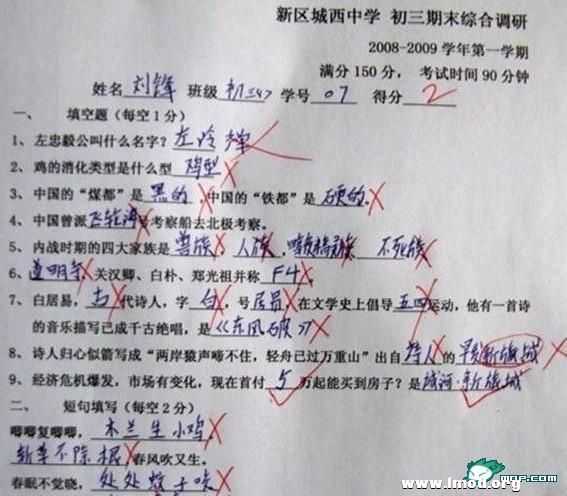 新区城西中学 初三期末综合调研
2008-2009学年第一学期
满分150分, 考试时间90分钟
姓名 刘锋 班级 初三<4> 学号 07 得分 2
一、 填空题(每空1分)
1、左忠毅公叫什么名字?左冷禅
2、鸡的消化类型是什么型 鸡型
3、中国的“煤都”是 黑的 ,中国的“铁都”是 硬的.
4、中国曾派 飞轮海号考察船去北极考察。
5、内战时期的四大家族是 兽族, 人族, 暗夜精灵族 不死族
6、道明寺 关汉卿、白朴、郑光祖并称 F4
7、白居易, 古 代诗人,字 白 ,号 居易 在文学史上倡导 五四 运动,他有一首诗
的音乐描写已成千古绝唱,是《东风破》
8、诗人归心似箭写成“两岸猿声啼不住,轻舟已过万重山”出自 诗人 的 新旗城
9、经济危机爆发,市场有变化,现在首付 5 万起能买到房子?是 新旗城
二、 短句填写(每空2分)
唧唧复唧唧, 木兰生小鸡
斩草不除根 春风吹又生。
春眠不觉晓, 处处蚊子咬
www.lmod.org
MOP.com